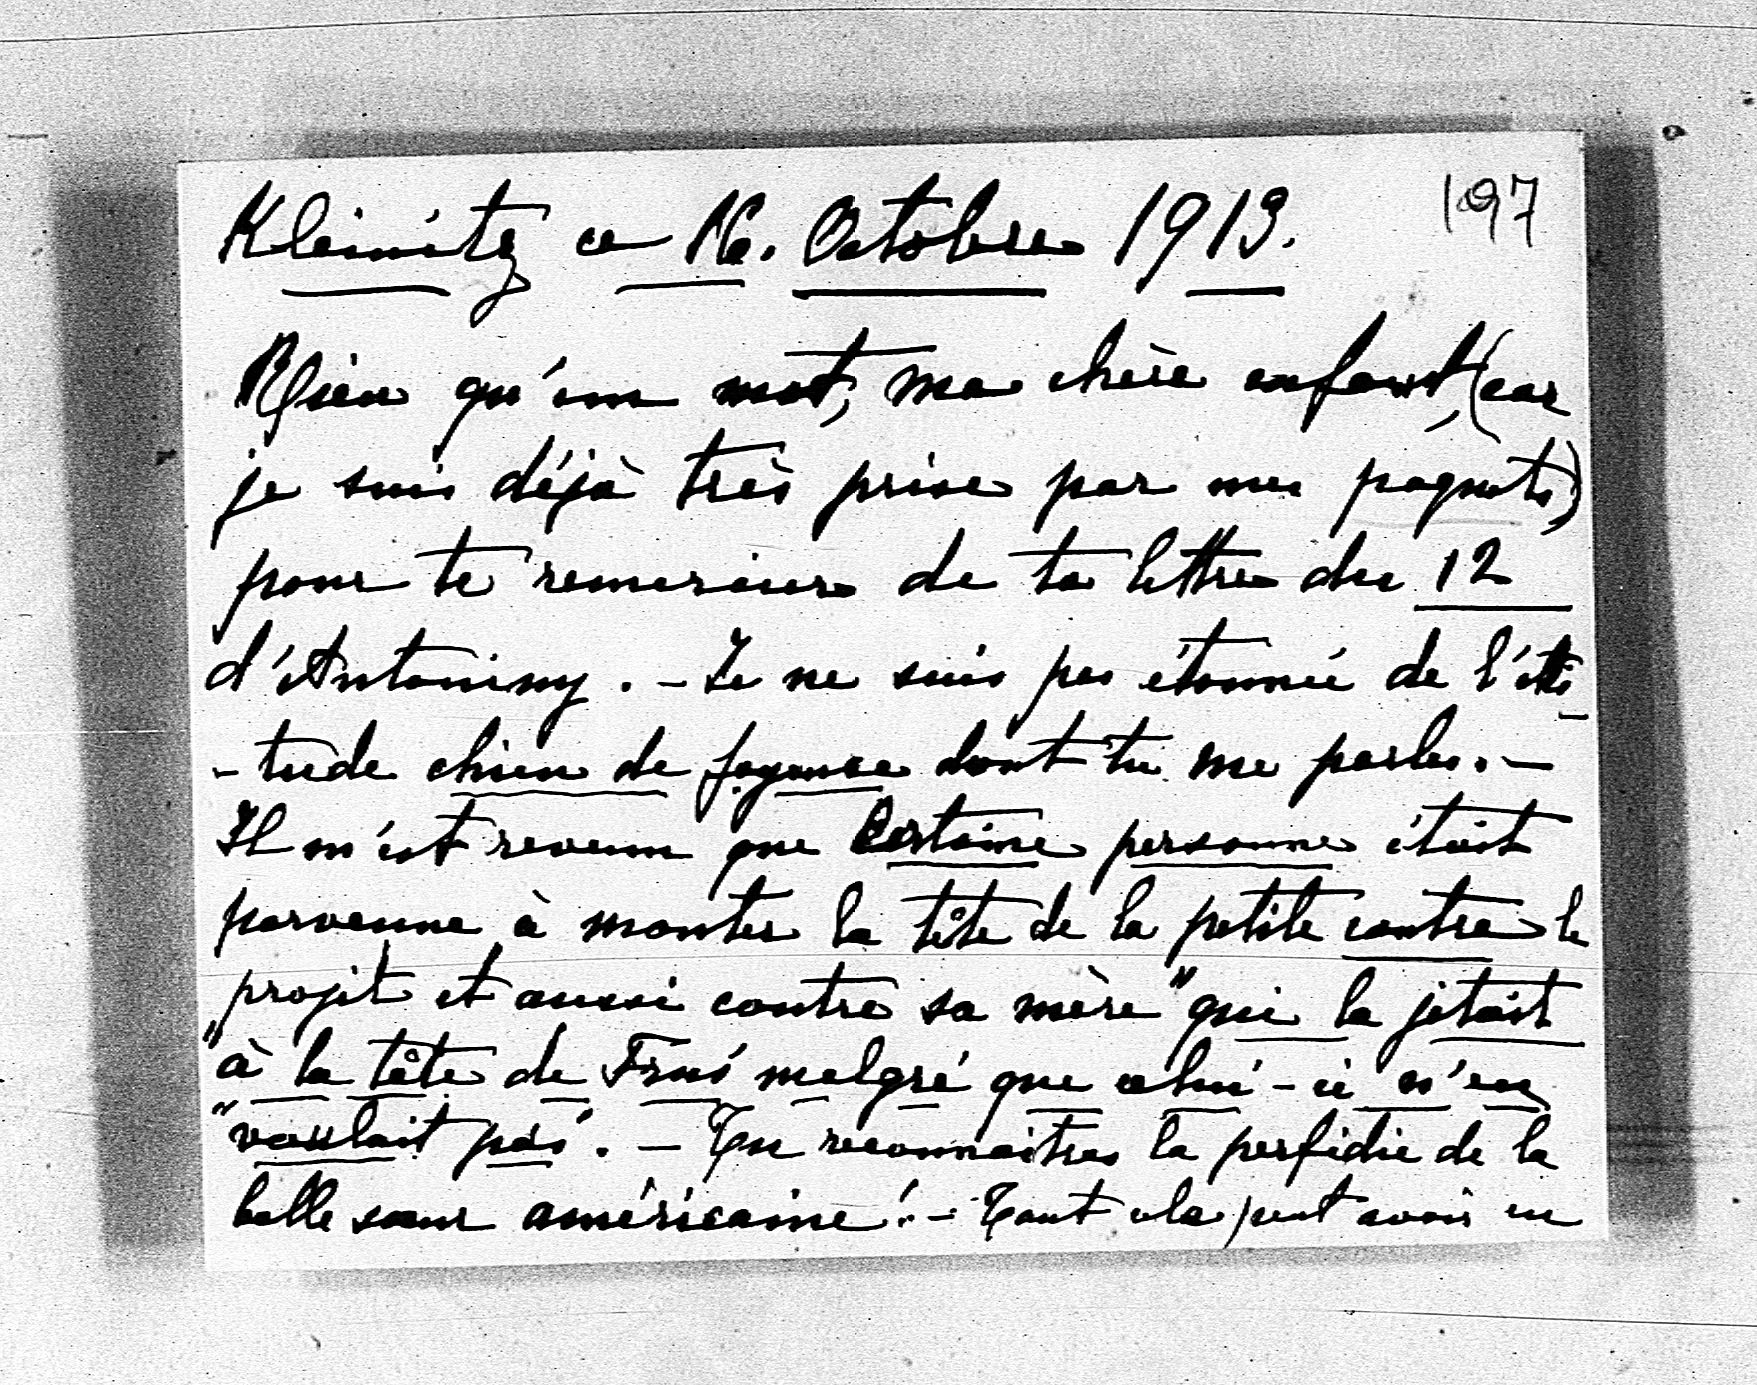 Kleinitz ce 16. Octobre 1913. 197
Rien qu'un mot, ma chère enfant, (car
je suis déjà très prise par mes paquets)
pour te remercier de ta lettre du 12
d'Antoniny. - Je ne suis pas étonnée de l'atti
- tude chien de fayence dont tu me parles. -
Il m'est revenu que certaine personne était
parvenue à monter la tête de la petite contre le
projet et aussi contre sa mère "qui la jetait
"à la tête de Frns malgré que celui-ci n'en
"voulait pas". - Tu reconnaitras la perfidie de la
belle sœur américaine! - Tout cela peut avoir eu